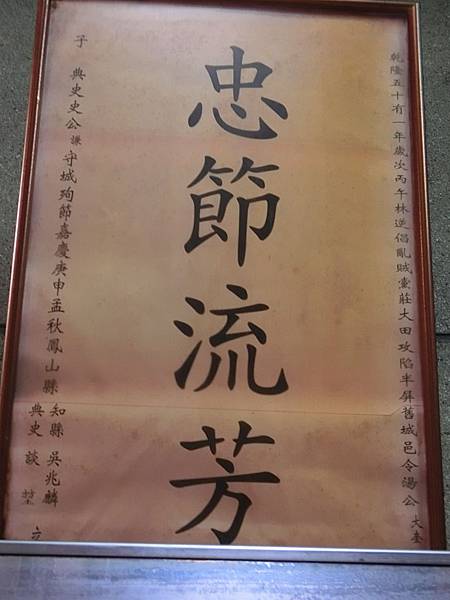 乾隆五十有一年歲次丙午林逆倡亂賊黨莊大田攻陷半屏舊城邑令湯公大奎
忠節流芳
子 典史史公謙守城殉節嘉慶庚申孟秋鳳山縣知縣 吳兆麟
典史 談 堃 立